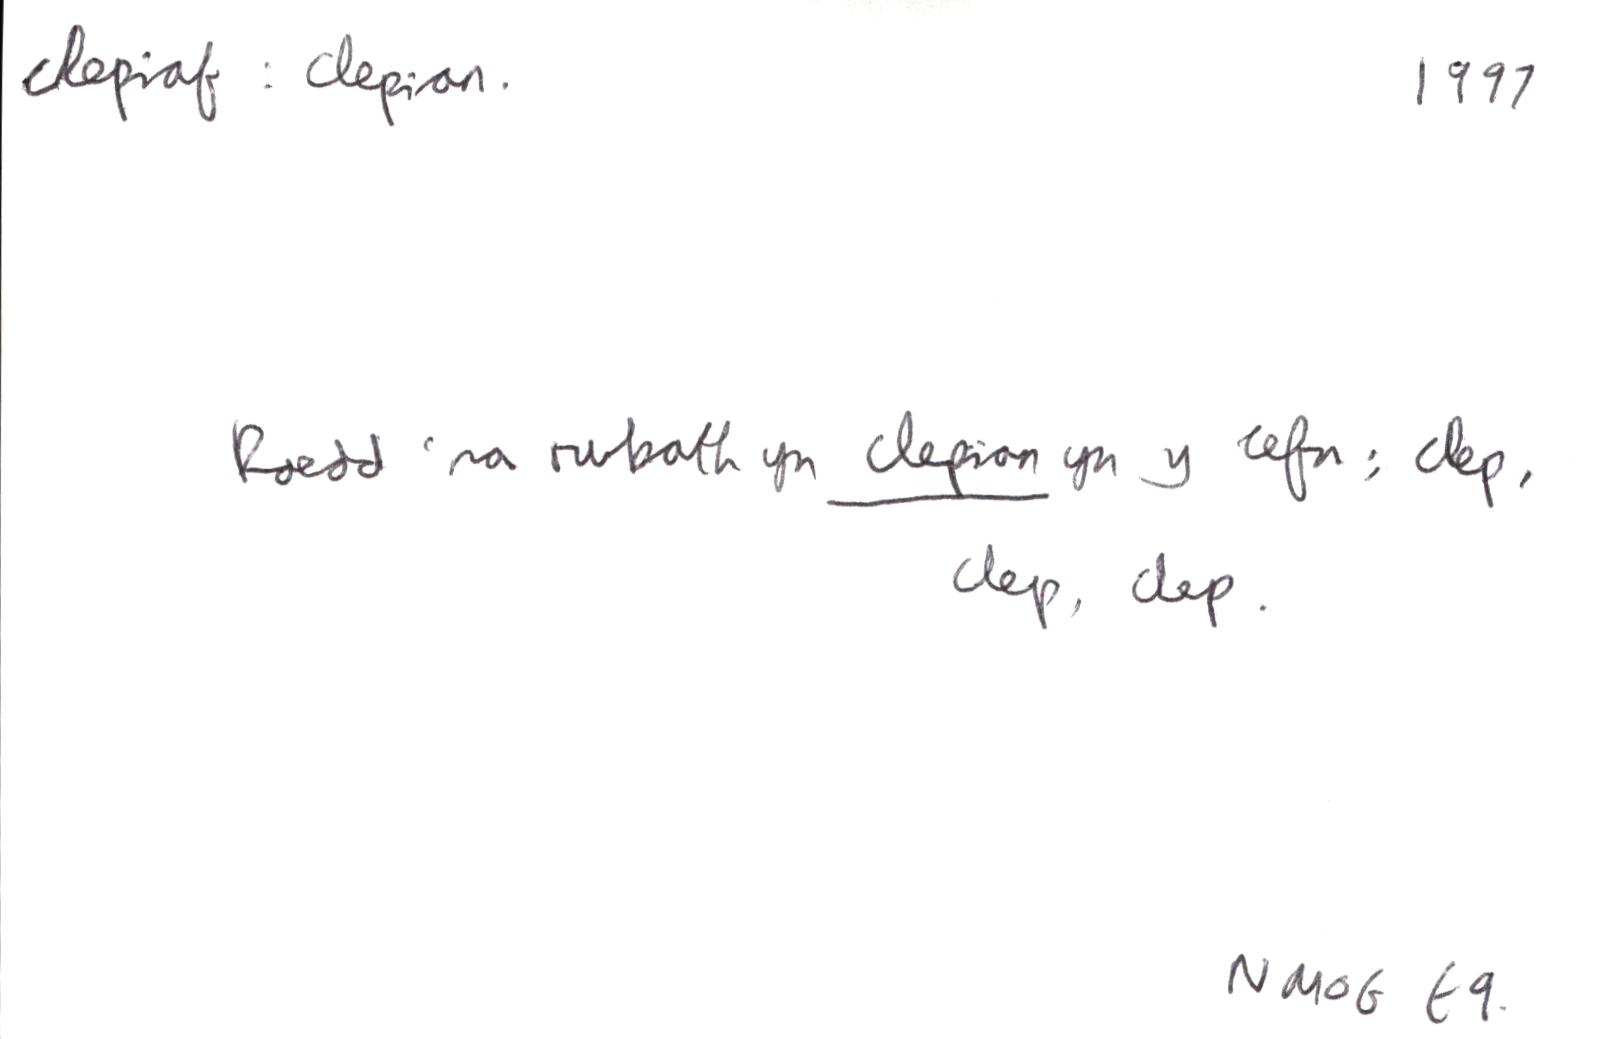 clepiaf : clepian. 1997
Roedd 'na rwbath yn clepian yn y cefn; clep,
clep, clep.
NMOG t9.